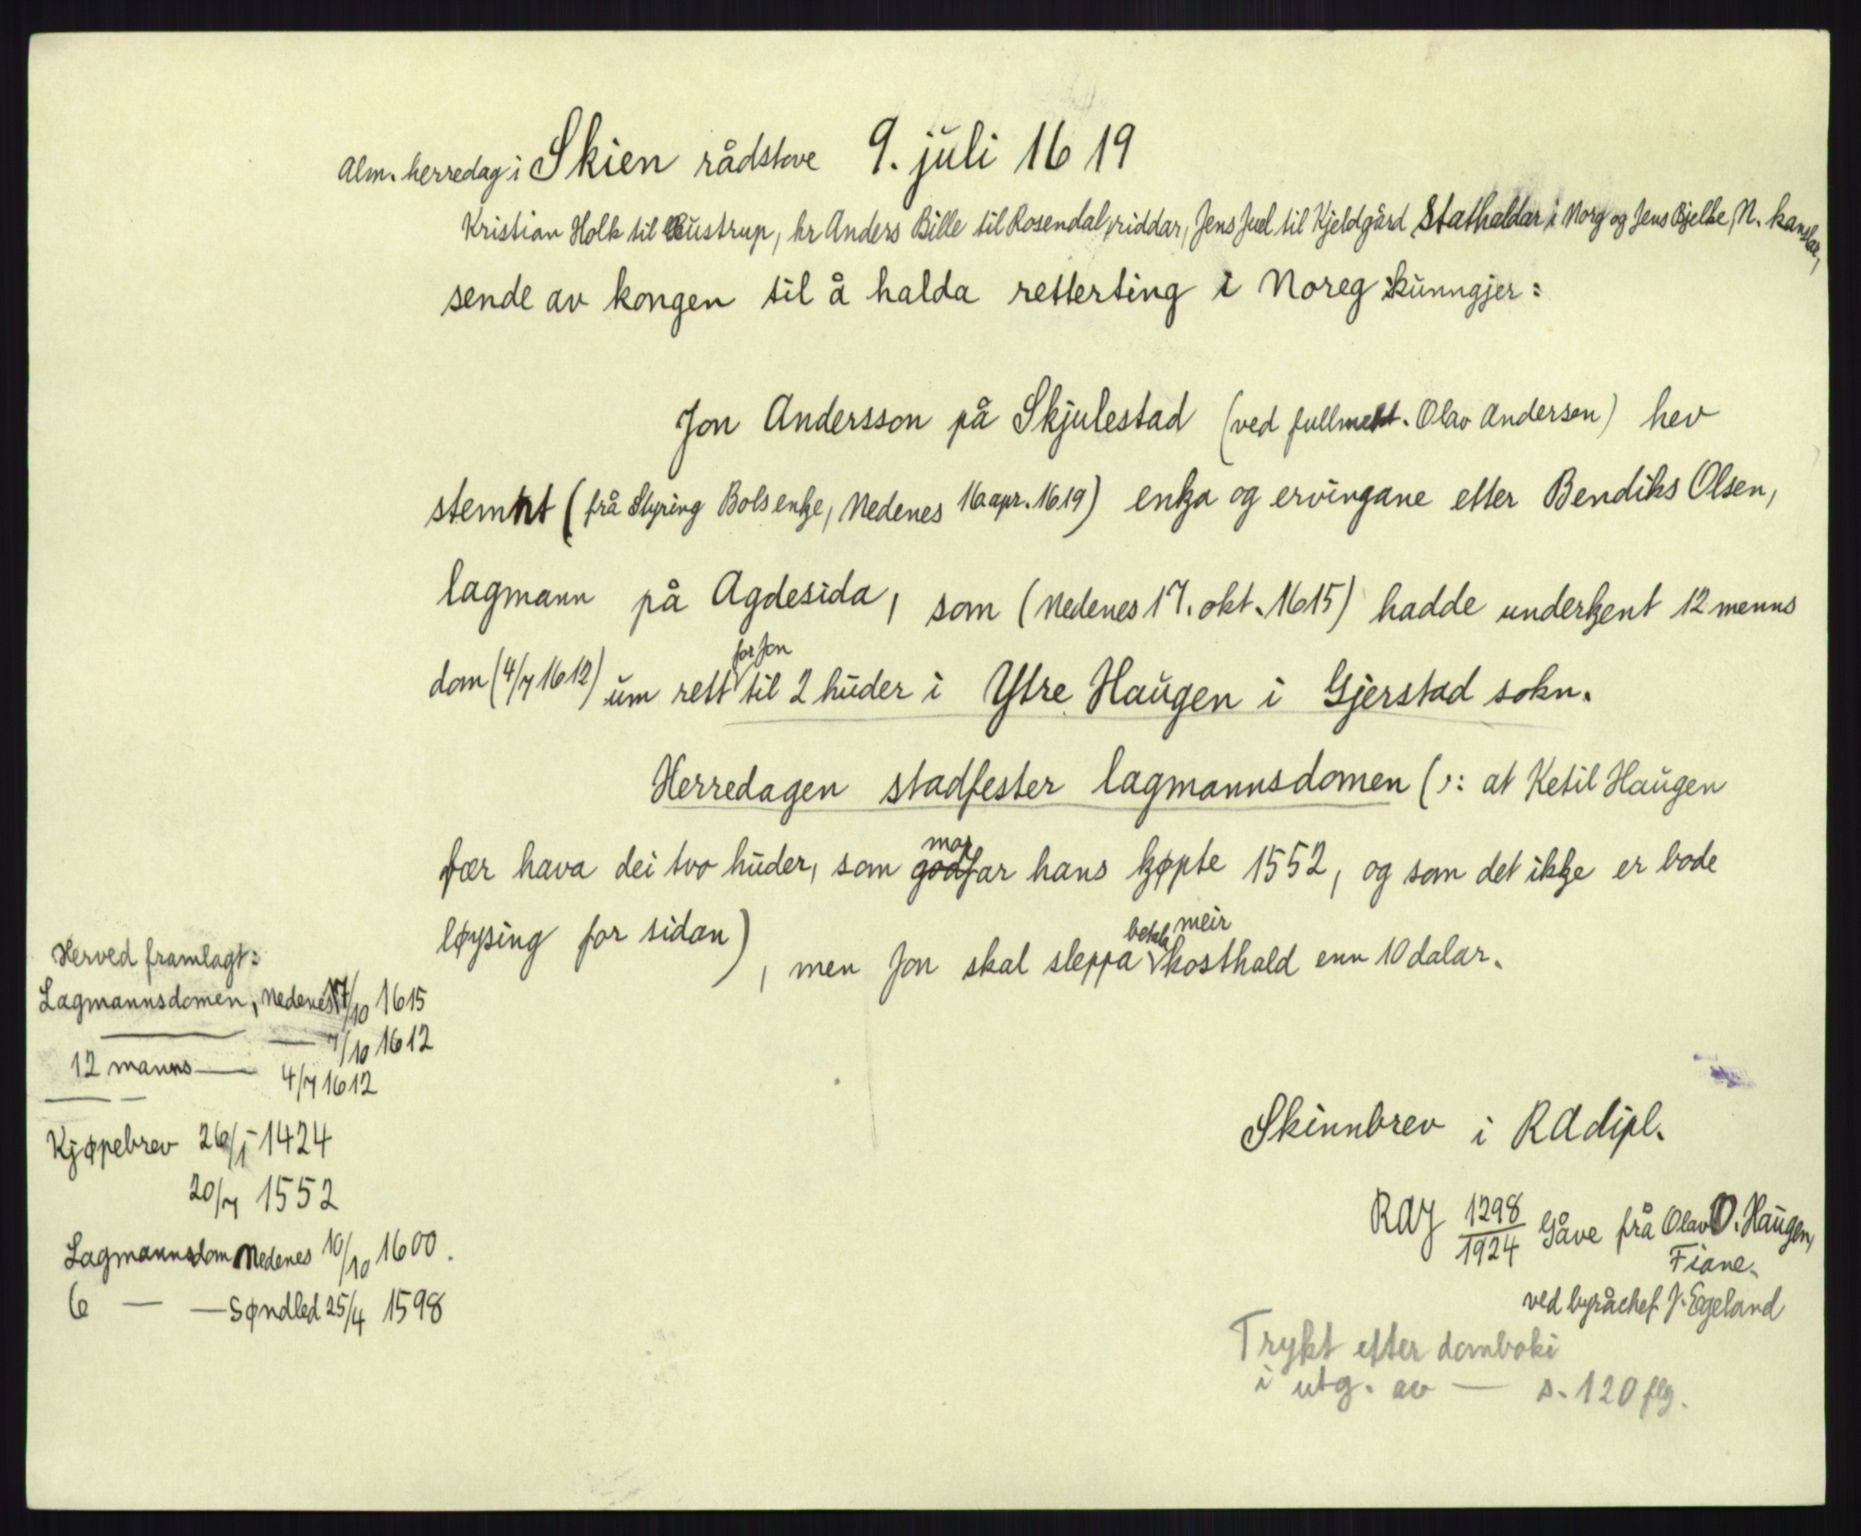 Alm. herredag i Skien rådstove 9. juli 1619
Kristian Holk til Bustrup, hr Anders Bille til Rosendal, riddar, Jens Juel til Kjeldgård Stathaldar i Norg og Jens Bjelke, N. kanslar,
sende av kongen til å halda retterting i Noreg kunngjer:
Jon Andersson på Skjulestad (ved fullmekt. Olav Anderson) hev
stemnt (frå Styring Bolsenke, Nedenes 16 apr. 1619) enkja og ervingane etter Bendiks Olsen,
lagmann på Agdesida, som (Nedenes 17. okt. 1615) hadde underkjent 12 menns
dom (4/7 1612) um rett for Jon til 2 huder i Ytre Haugen i Gjerstad sokn.
Herredagen stadfester lagmannsdomen (ɔ: at Ketil Haugen
fær hava dei tvo huder, som morfar hans kjøpte 1552, og som det ikkje er bode
løysing for sidan), men Jon skal sleppa betala meir kosthald enn 10 dalar.
Herved framlagt:
Lagmannsdomen, Nedenes 17/10 1615
— — 7/10 1612
12 manns — 4/7 1612
Kjøpebrev 26/5 1424
20/7 1552
Lagmannsdom Nedenes 10/10 1600.
6 — — Søndled 25/4 1598
Skinnbrev i RA dipl.
RAJ 1298/1924 Gåve frå Olav O. Haugen,
Fiane.
ved byråchef J. Egeland
Trykt efter domboki
i utg. av — s. 120 flg.